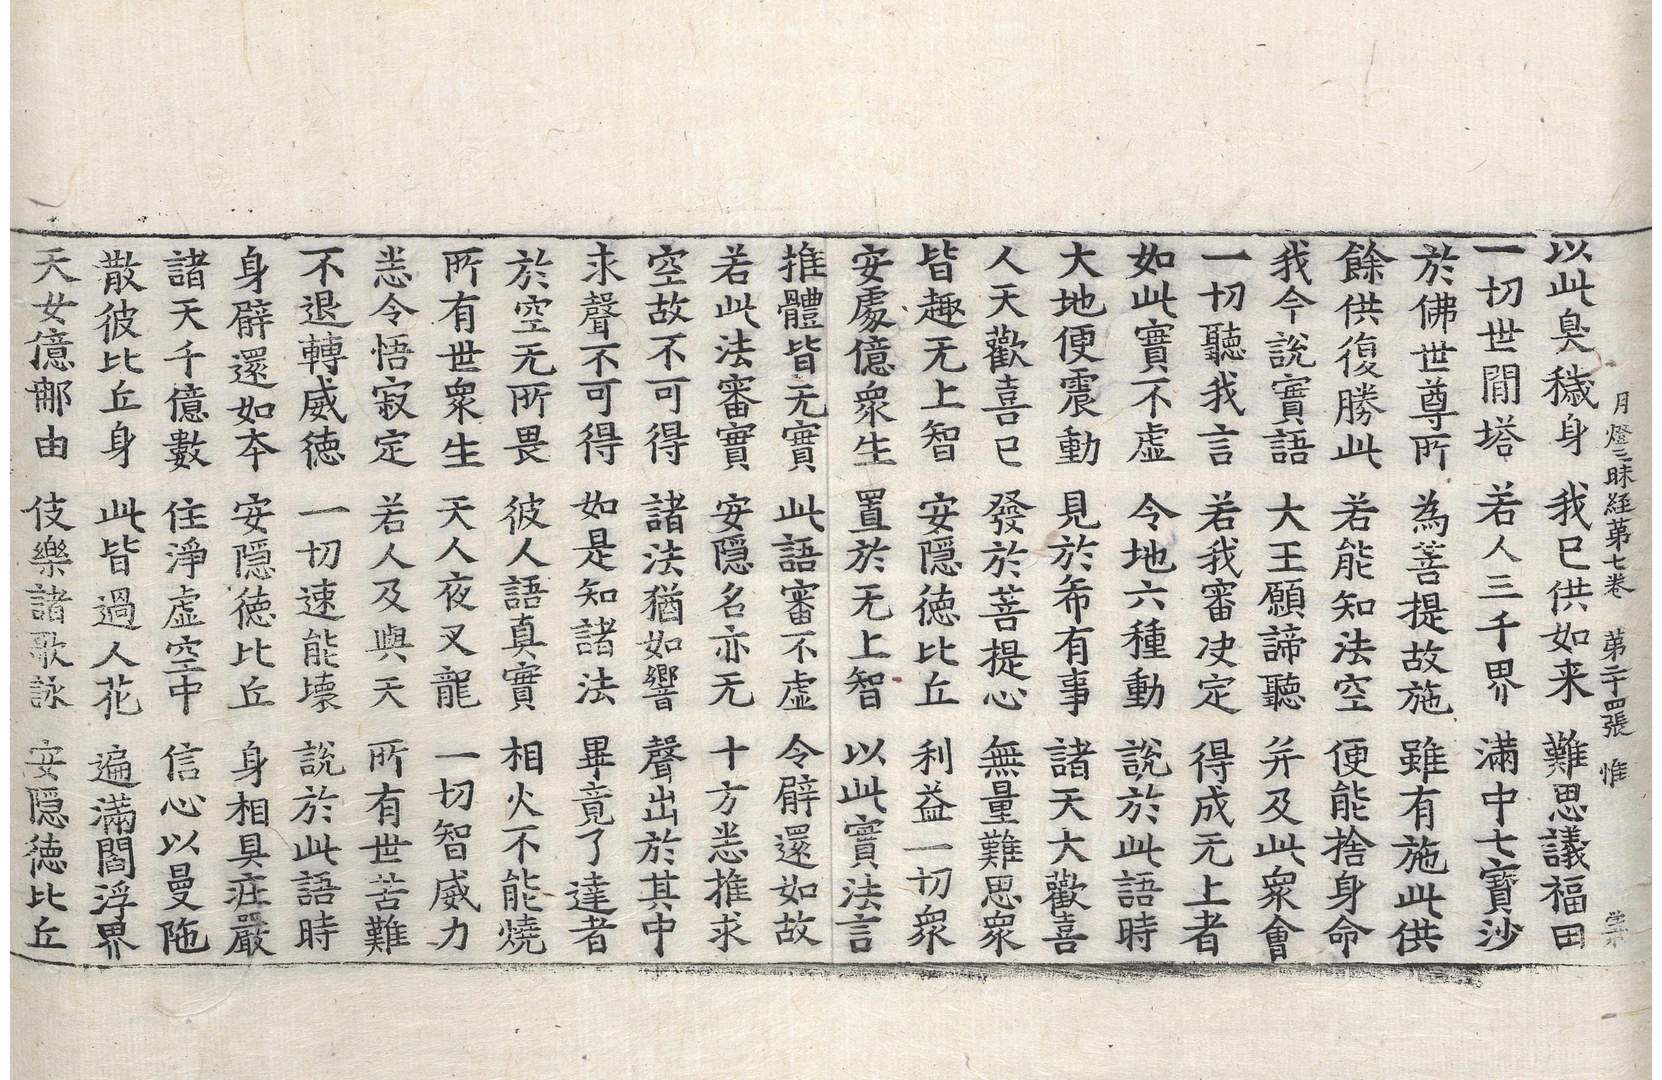 月燈三昧経第七卷 第二十四張 惟
以此臭穢身 我已供如来 難思議福田
一切世間塔 若人三千界 滿中七寶沙
於佛世尊所 為菩提故施 雖有施此供
餘供復勝此 若能知法空 便能捨身命
我今說實語 大王願諦聽 并及此衆會
一切聽我言 若我審决定 得成无上者
如此實不虛 令地六種動 說於此語時
大地便震動 見於希有事 諸天大歡喜
人天歡喜已 發於菩提心 無量難思衆
皆趣无上智 安隱徳比丘 利益一切衆
安處億衆生 置於无上智 以此實法言
推體皆无實 此語審不虛 令臂還如故
若此法審實 安隱名亦无 十方悉推求
空故不可得 諸法猶如響 聲出於其中
求聲不可得 如是知諸法 畢竟了達者
於空无所畏 彼人語真實 相火不能燒
所有世衆生 天人夜叉龍 一切智威力
悉令悟寂定 若人及與天 所有世苦難
不退轉威徳 一切速能壞 說於此語時
身臂還如本 安隱徳比丘 身相具莊嚴
諸天千億數 住淨虛空中 信心以曼陁
散彼比丘身 此皆過人花 遍滿閻浮界
天女億那由 伎樂諸歌詠 安隱徳比丘